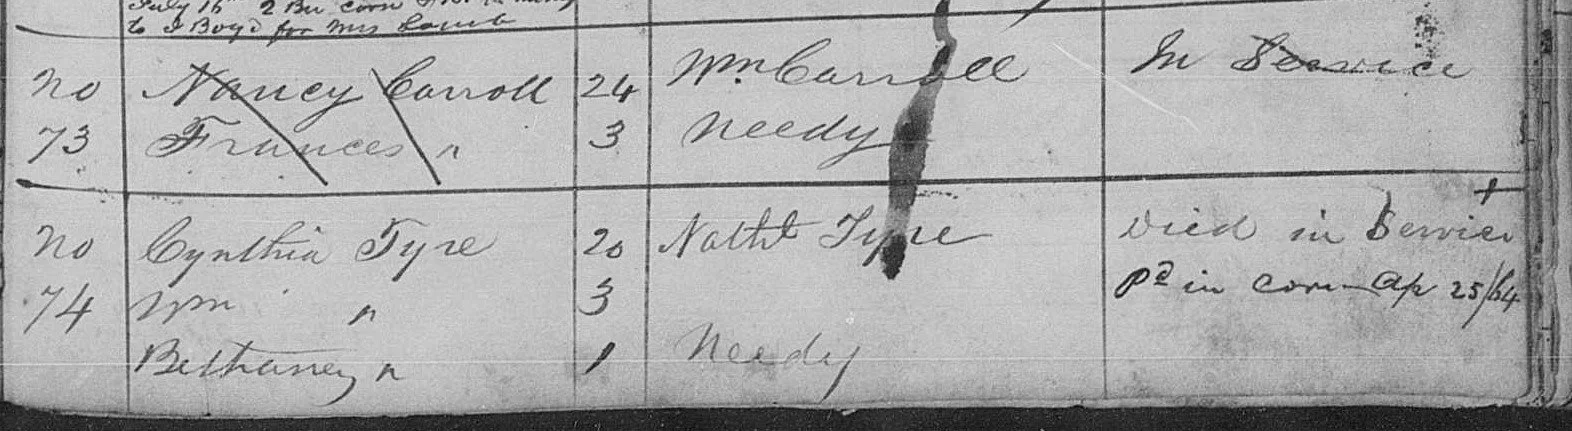 July 15" 2 Bu corn
to J Boyd for Mrs Lamb
No Nancy Carroll 24 Wm Carroll In Service
73 Frances " 3 Needy
No Cynthia Tyre 20 Nathl Tyre Died in Service
74 Wm " 3 Pd in Corn Ap 25/64
Bethaney " 1 Needy